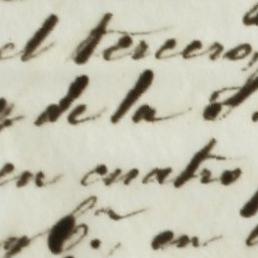 el tercero,
y de la
en cuatro
en